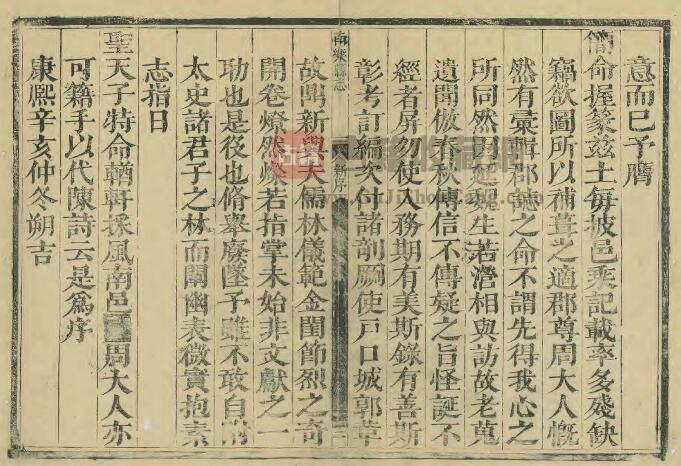 意而已予膺
簡命握篆茲土每披邑乘記載率多殘缺
竊欲圖所以補葺之適郡尊周大人慨
然有彙輯郡誌之命不謂先得我心之
所同然因延魏生若瀅相與訪故老蒐
遺聞倣春秋傳信不傳疑之旨怪誕不
經者屏勿使入務期有美斯錄有善斯
彰考訂編次付諸剞劂使戸口城郭革
南樂縣志
新序
二
故鼎新與夫儒林儀範金閨節烈之奇
開卷燎然燦若指掌未始非文獻之一
助也是役也脩舉廢墜予雖不敢自附
太史諸君子之林而闡幽表微實抱素
志指日
聖天子特命輶軒採風南邑周大人亦
可籍手以代陳詩云是為序
康熙辛亥仲冬朔吉